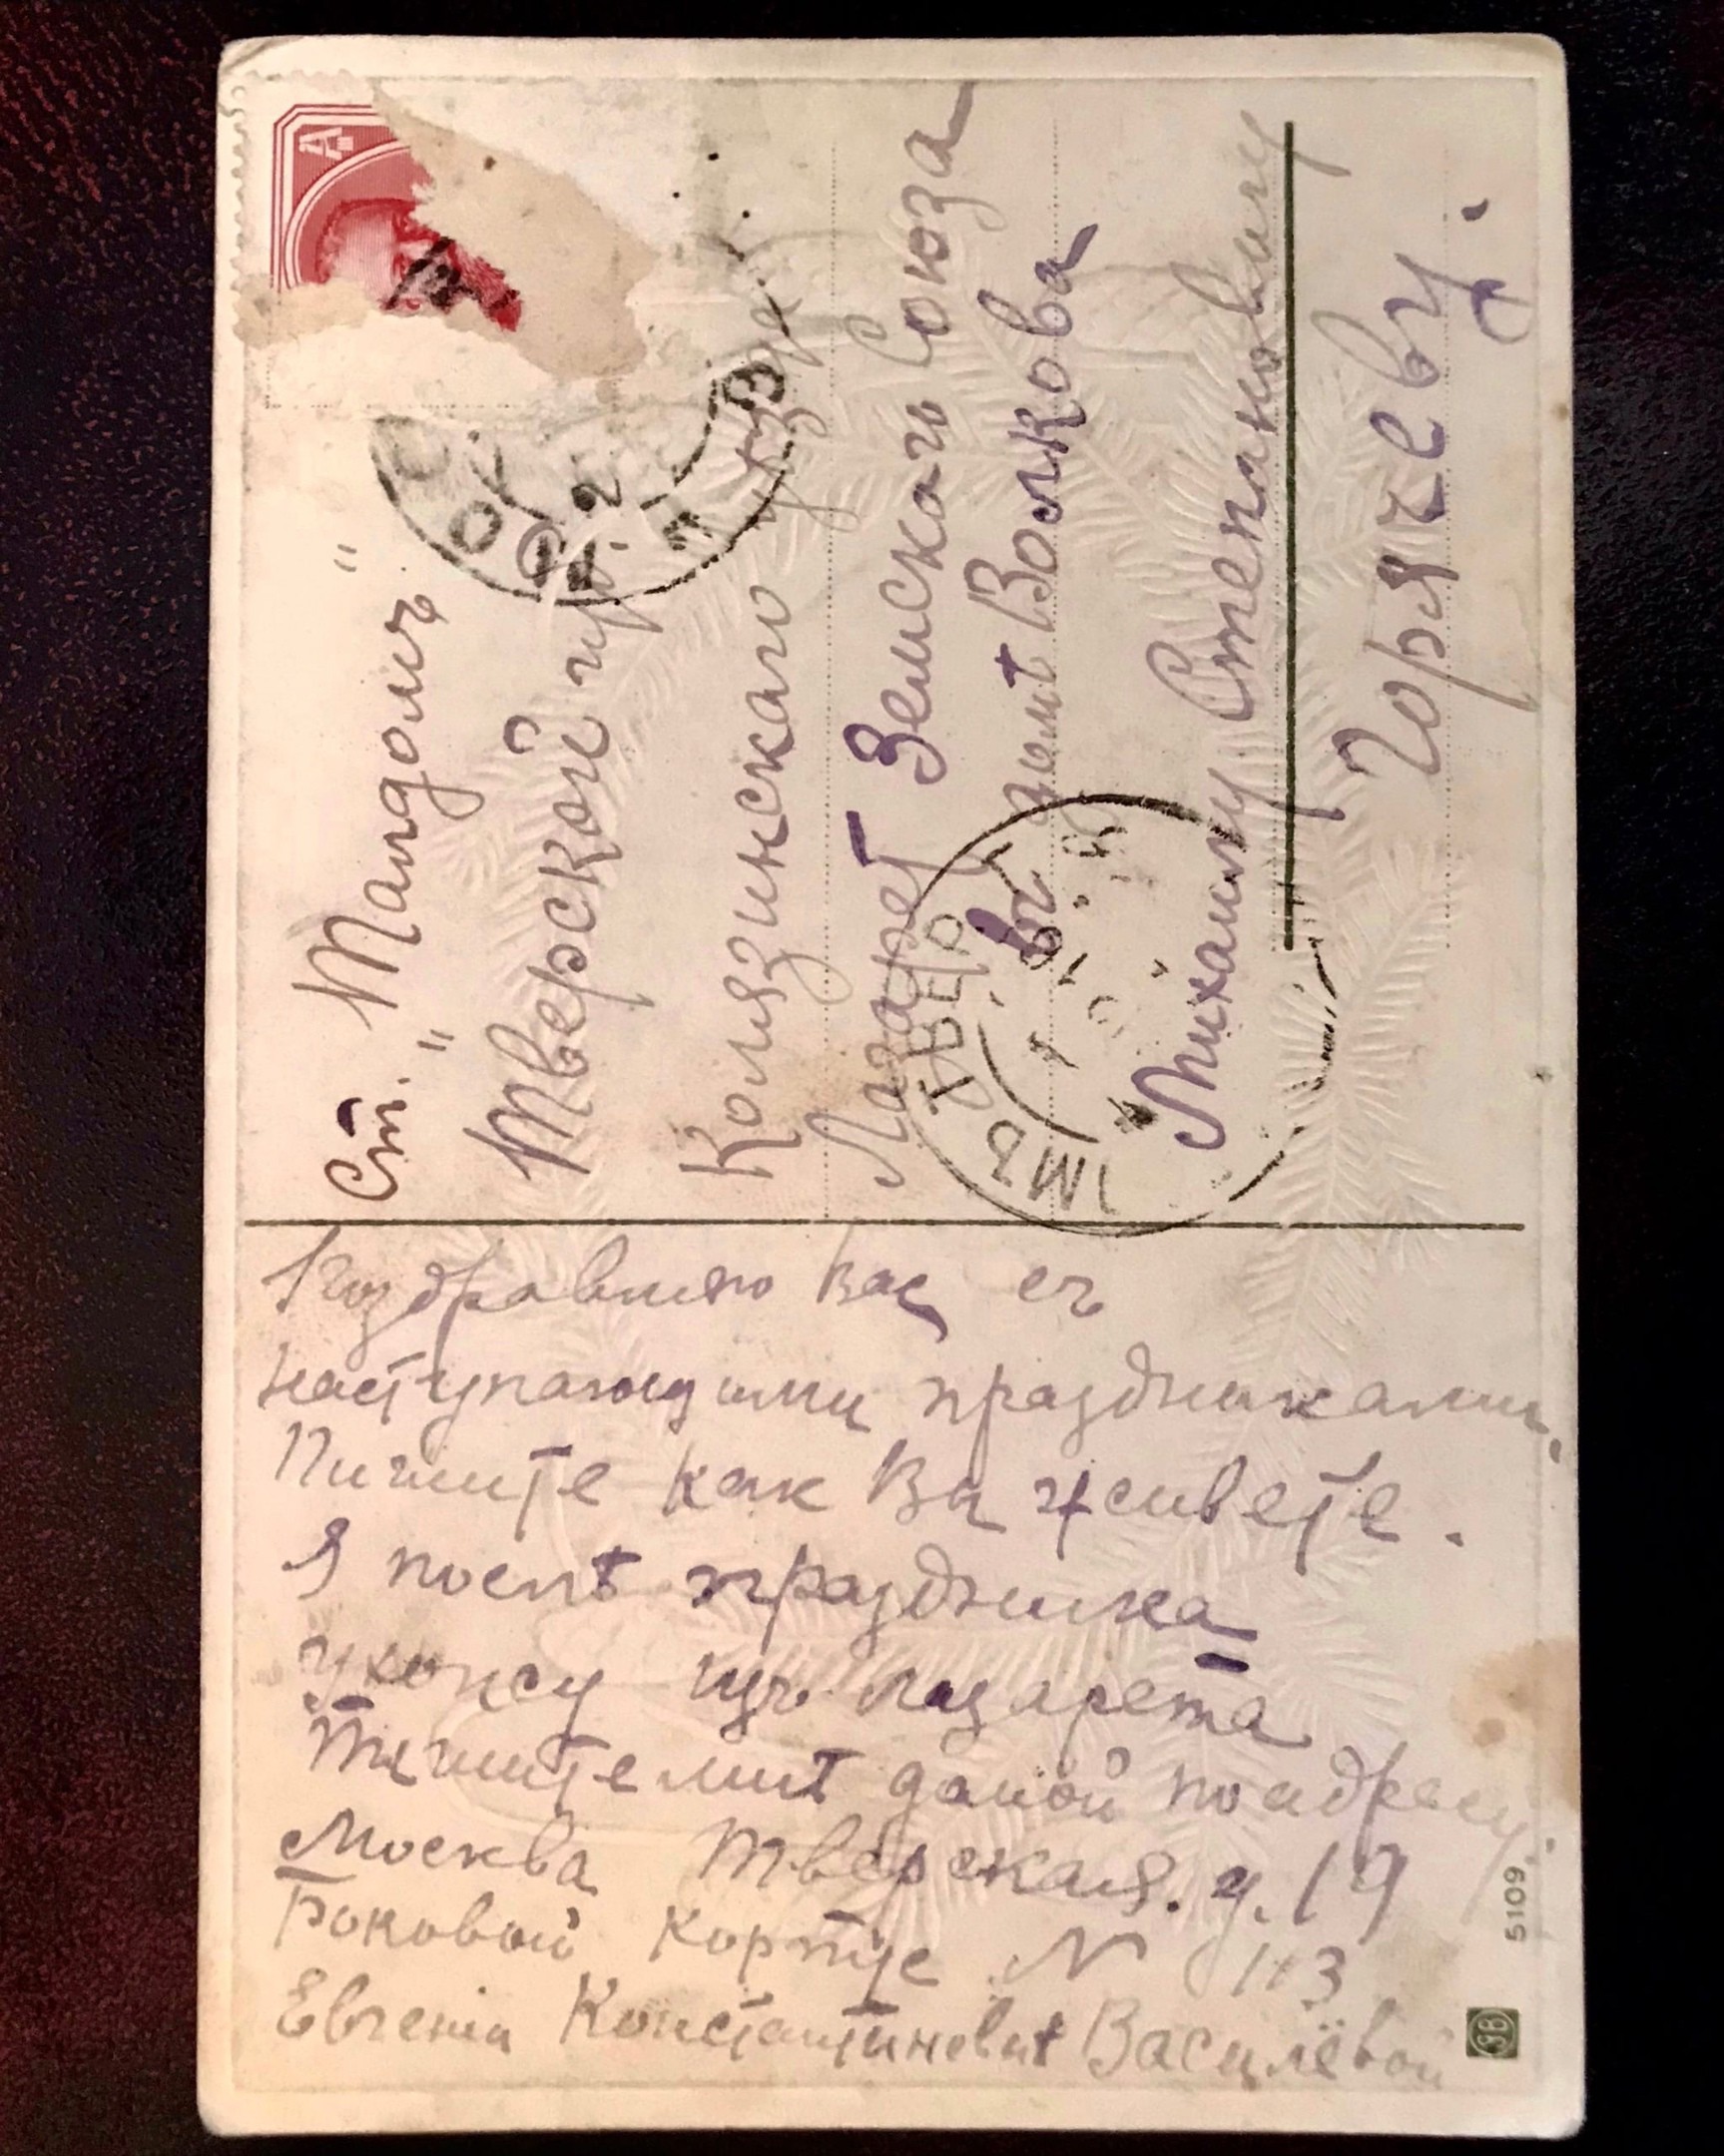 Ст. "Талдомъ"
Тверской губ.
Колязинскаго уѣзда
Лазарет Земскаго Союза
въ домѣ Волкова
Михаилу Степановичу
Горячеву.
ТВЕР
Поздравляю Вас съ
наступающими праздниками.
Пишите как Вы живете.
Я послѣ праздника
ухожу изъ лазарета
Пишите мнѣ домой по адресу:
Москва Тверская. д. 19
Боковой корпус N 113
Евгении Константиновнѣ Василёвой
5109